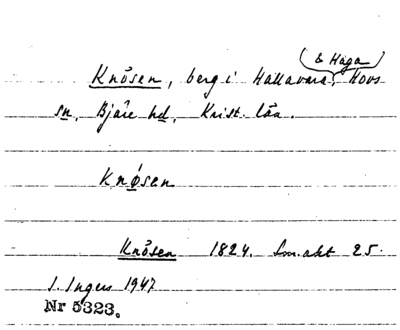 (& Haga)
Knösen, berg i Hallavara, Hovs
sn, Bjäre hd, Krist. län.
Knǿsen
Knösen 1824. Lm. akt 25.
I. Ingers 1947
Nr 5323.